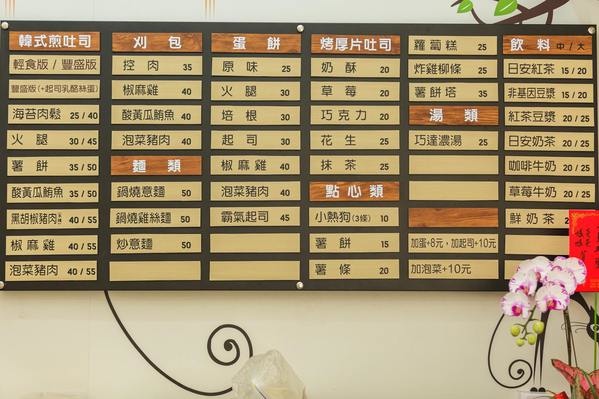 韓式煎吐司
輕食版 / 豐盛版
豐盛版(+起司乳酪絲蛋)
海苔肉鬆 25 / 40
火腿 30 / 45
薯餅 35 / 50
酸黃瓜鮪魚 35 / 50
黑胡椒豬肉 40 / 55
椒麻雞 40 / 55
泡菜豬肉 40 / 55
刈包
控肉 35
椒麻雞 40
酸黃瓜鮪魚 40
泡菜豬肉 40
麵類
鍋燒意麵 50
鍋燒雞絲麵 50
炒意麵 50
蛋餅
原味 25
火腿 30
培根 30
起司 30
椒麻雞 40
泡菜豬肉 40
霸氣起司 45
烤厚片吐司
奶酥 20
草莓 20
巧克力 20
花生 25
抹茶 25
點心類
小熱狗(3條) 10
薯餅 15
薯條 20
蘿蔔糕 25
炸雞柳條 25
薯餅塔 35
湯類
巧達濃湯 25
加蛋+8元,加起司+10元
加泡菜+10元
飲料 中 / 大
日安紅茶 15 / 20
非基因豆漿 15 / 20
紅茶豆漿 20 / 25
日安奶茶 20 / 25
咖啡牛奶 20 / 25
草莓牛奶 20 / 25
鮮奶茶